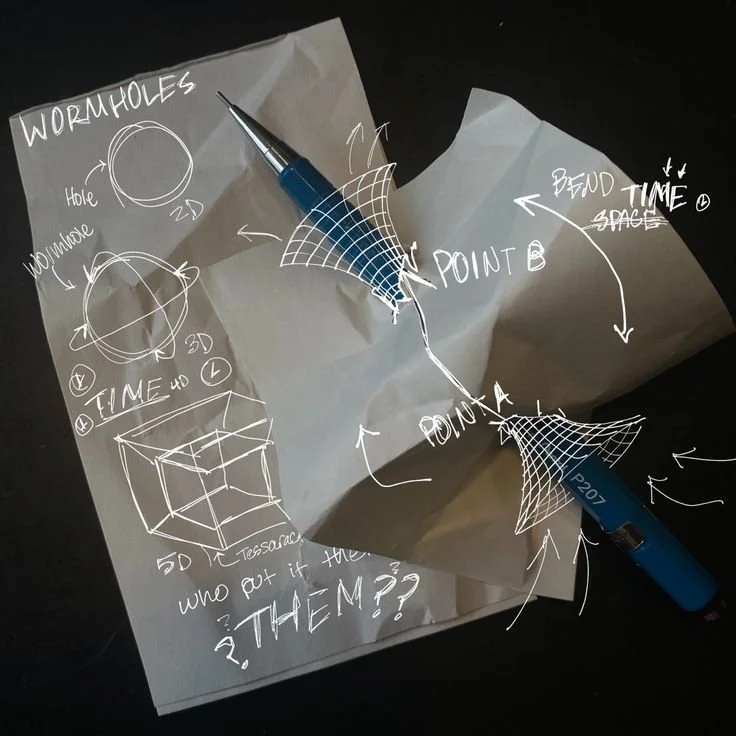 WORMHOLES
Hole
2D
Wormhole
3D
TIME 4D
5D
Tessarac
who put it the
? THEM??
?
POINT B
POINT A
BEND TIME
SPACE
P207